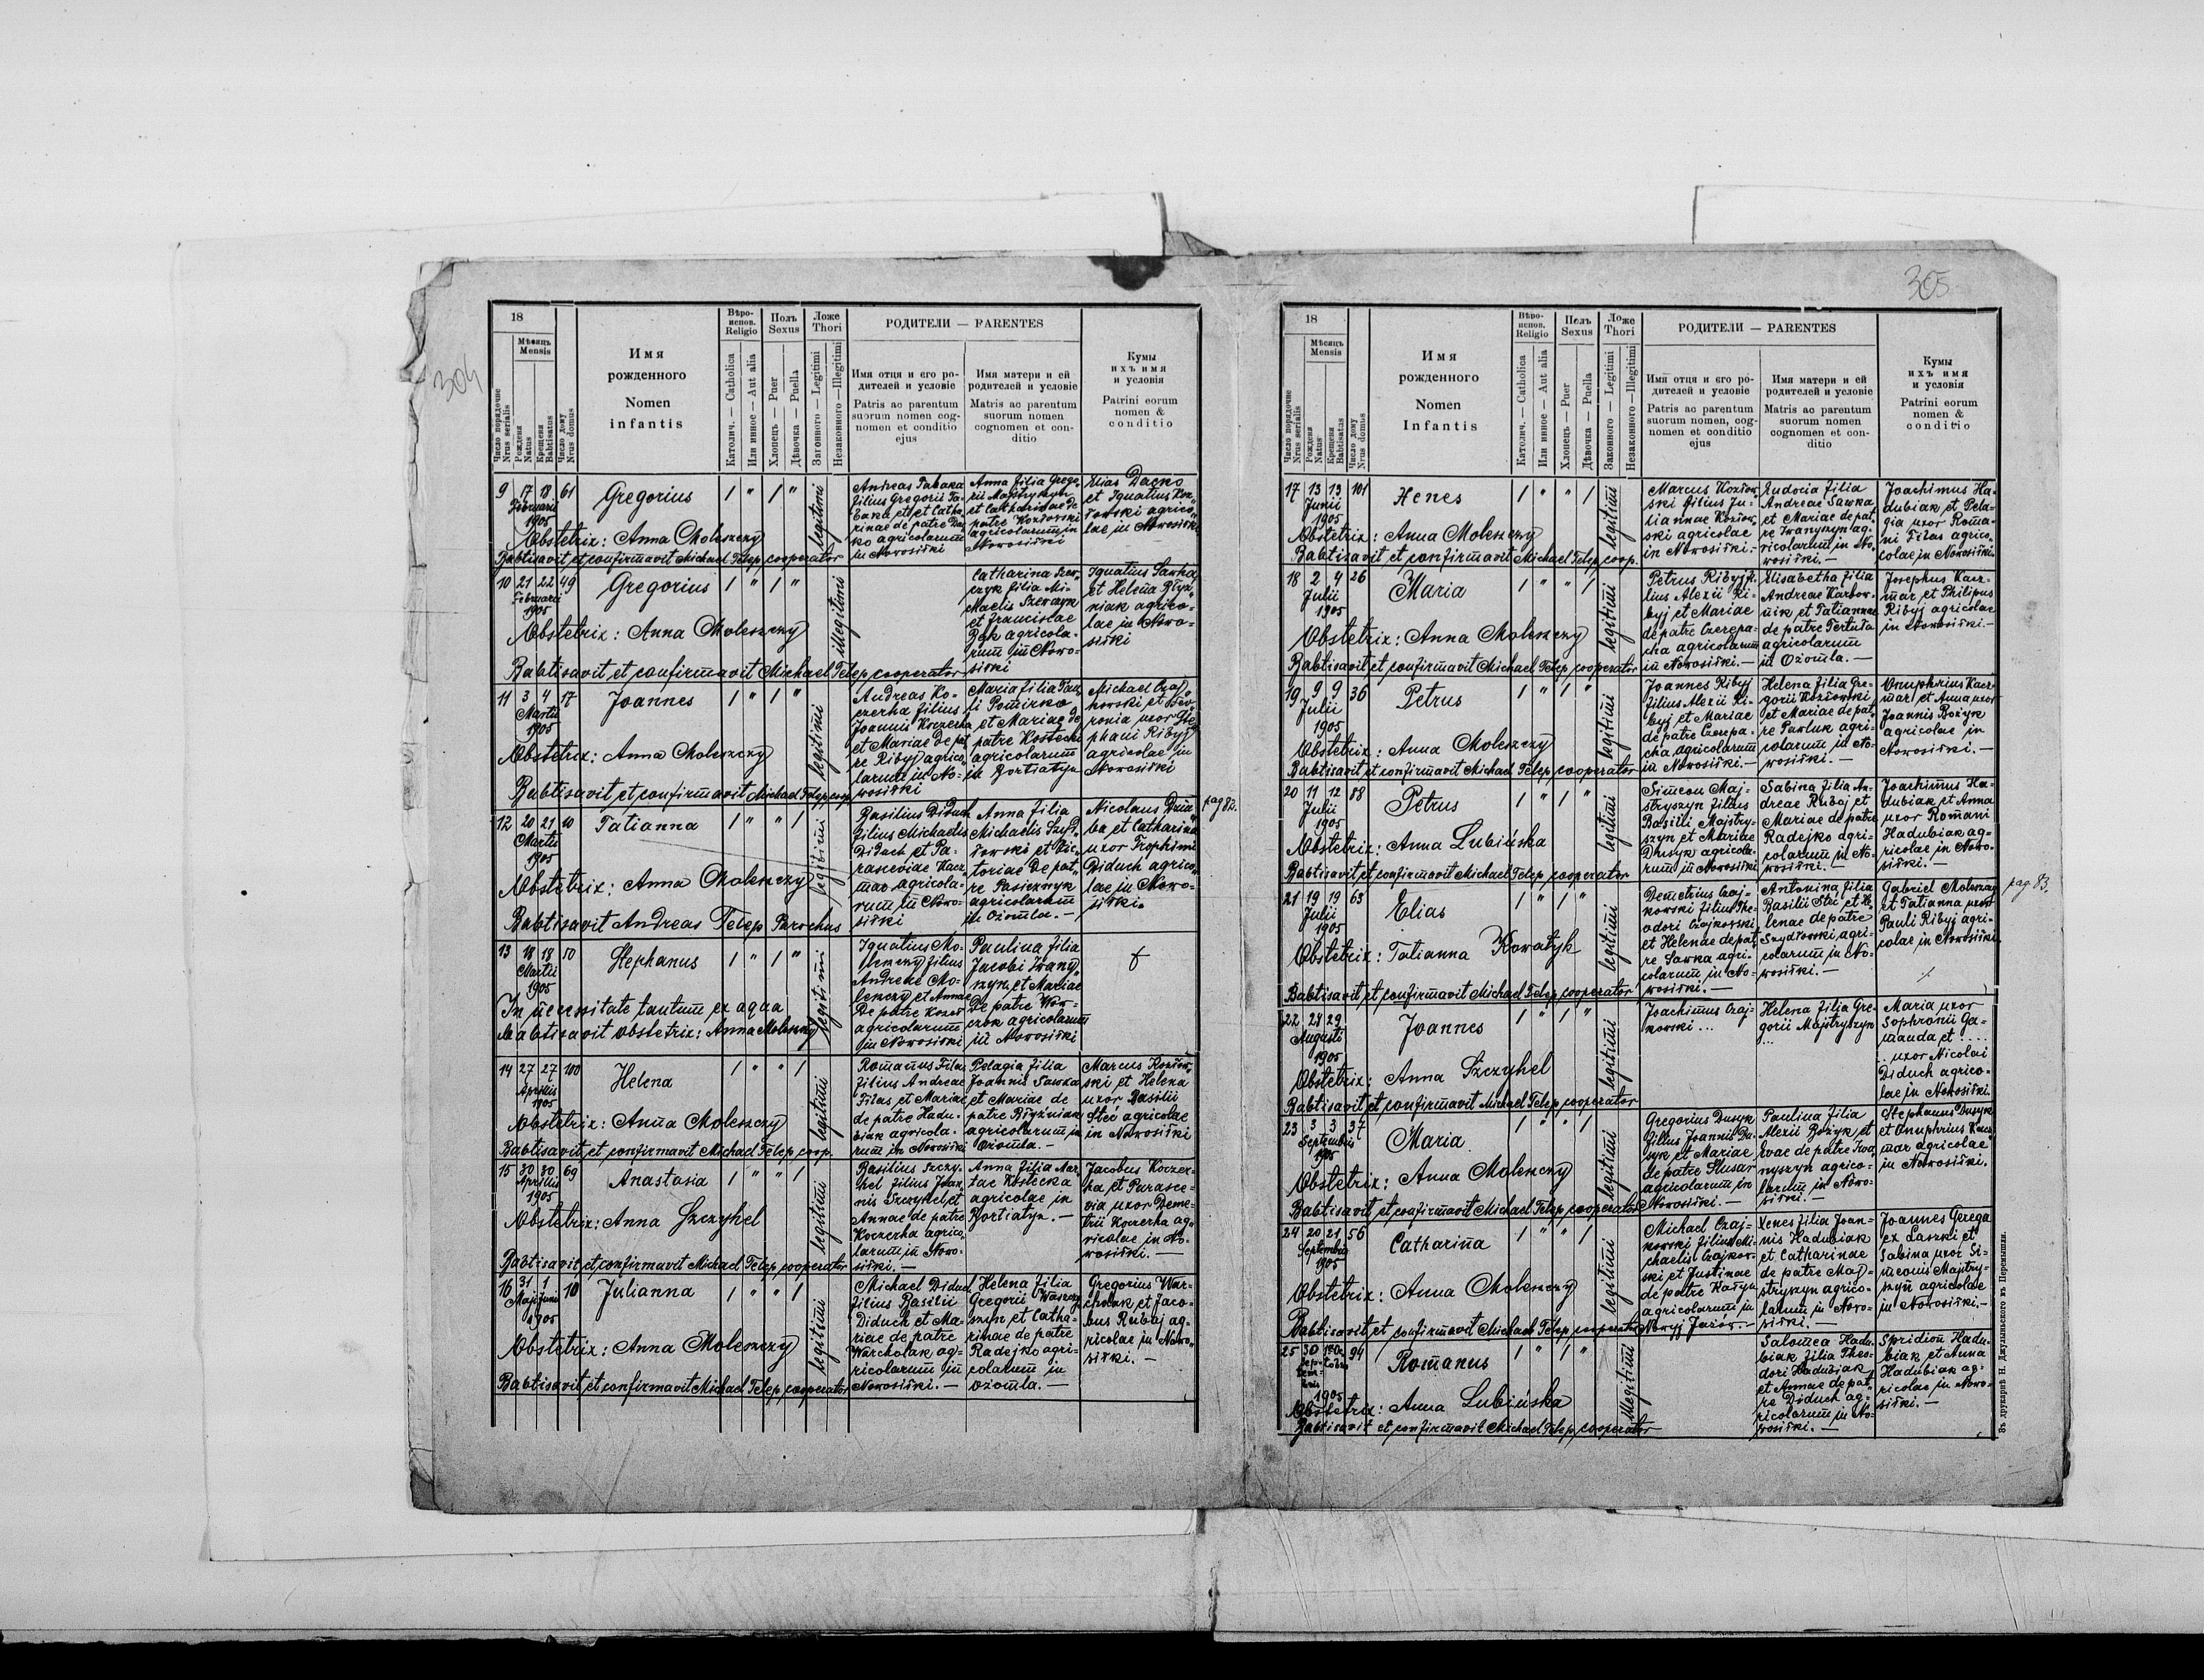 304
18
Мѣсяць
Mensis
Число порядочне
Nrus serialis
Рожденя
Natus
Крещеня
Babtisatus
Число дому
Nrus domus
Имя
рожденного
Nomen
infantis
Вѣро-
испов.
Religio
Католич. — Catholica
Или инное — Aut alia
Полъ
Sexus
Хлопець — Puer
Дѣвочка — Puella
Ложе
Thori
Законного — Legitimi
Незаконного — Illegitimi
РОДИТЕЛИ — PARENTES
Имя отця и єго ро-
дителей и условіе
Patris ac parentum
suorum nomen cog-
nomen et conditio
ejus
Имя матери и ей
родителей и условіе
Matris ac parentum
suorum nomen
cognomen et con-
ditio
Кумы
ихъ имя
и условія
Patrini eorum
nomen &
conditio
9 17 18 61 Gregorius 1 " 1 " legitimi
Februarii
1905
Obstetrix: Anna Moleszczy
Babtisavit et confirmavit Michael Telep cooperator
Andreas Tabaka
filius Gregorii Ta-
baka et Catha-
rinae de patre Dac
ko agricolarum
in Nowosiłki
Anna filia Grego-
rii Majstryszyn
et Catharinae de
patre Kozłowski
agricolarum in
Nowosiłki
Elias Dacko
et Ignatius Koz„
łowski agrico„
lae in Nowosiłki
10 21 22 49 Gregorius 1 " 1 " illegitimi
Februarii
1905
Obstetrix: Anna Moleszczy
Babtisavit et confirmavit Michael Telep cooperator
Catharina Szew„
czyk filia Mi-
chaelis Szewczyk
et Franciscae
Bąk agricola-
rum in Nowo-
siłki
Ignatius Sawka
et Helena Ryz„
niak agrico-
lae in Nowo-
siłki
11 3 4 17 Joannes 1 " 1 " legitimi
Martii
1905
Obstetrix: Anna Moleszczy
Babtisavit et confirmavit Michael Telep coop.
Andreas Ko-
czerha filius
Joannis Koczerha
et Mariae de pat
re Ribyj agrico„
larum in No-
wosiłki
Maria filia Pau„
li Pomirko
et Mariae de
patre Kostecki
agricolarum
in Bortiatyn
Michael Czaj„
kowski et Fev-
ronia uxor Ste„
phani Ribyj
agricolae in
Nowosiłki
12 20 21 10 Tatianna 1 " " 1 legitimi
Martii
1905
Obstetrix: Anna Moleszczy
Babtisavit Andreas Telep Parochus
Basilius Diduch
filius Michaelis
Diduch et Pa-
rasceviae Kacz
mar agricola-
rum in Nowo-
siłki
Anna filia
Michaelis Szyd„
łowski et Vic-
toriae de pat„
re Pasicznyk
agricolarum
in Ożomla.—
Nicolaus Dziu
ba et Catharina
uxor Trophimi
Diduch agrico„
lae in Nowo-
siłki.
pag 82.
13 18 18 50 Stephanus 1 " 1 " legitimi
Martii
1905
In necessitate tantum ex aqua
babtisavit obstetrix: Anna Moleszczy
Ignatius Mo-
leszczy filius
Andreae Mo-
leszczy et Annae
de patre Kozeł
agricolarum
in Nowosiłki
Paulina filia
Jacobi Iwany„
szyn et Mariae
de patre Waw-
czak agricolarum
in Nowosiłki
14 27 27 100 Helena 1 " " 1 legitimi
Aprilis
1905
Obstetrix: Anna Moleszczy
Babtisavit et confirmavit Michael Telep coop.
Romanus Fiłas
filius Andreae
Fiłas et Mariae
de patre Hadu-
biak agricola-
rum in Nowosiłki
Pelagia filia
Joannis Sawka
et Mariae de
patre Ryżniak
agricolarum in
Ożomla.—
Marcus Kozłow„
ski et Helena
uxor Basilii
Steć agricolae
in Nowosiłki
15 30 30 69 Anastasia 1 " " 1 legitimi
Aprilis
1905
Obstetrix: Anna Szczyhel
Babtisavit et confirmavit Michael Telep cooperator
Basilius Szczy-
hel filius Joan„
nis Szczyhel et
Annae de patre
Koczerha agrico„
larum in Nowo-
siłki.—
Anna filia Mar„
tae Kostecka
agricolae in
Bortiatyn.—
Jacobus Koczer-
ha et Parasce-
via uxor Deme-
trii Koczerha ag„
ricolae in No-
wosiłki.—
16 31 1 10 Julianna 1 " " 1 legitimi
Maji Junii
1905
Obstetrix: Anna Moleszczy
Babtisavit et confirmavit Michael Telep cooperator
Michael Diduch
filius Basilii
Diduch et Ma-
riae de patre
Warcholak ag-
ricolarum in
Nowosiłki.—
Helena filia
Gregorii
et Catha-
rinae de patre
Radejko agri-
colarum in
Ożomla.—
Gregorius War-
cholak et Jaco-
bus Rubaj ag-
ricolae in Nowo„
siłki.—
305
18
Мѣсяць
Mensis
Число порядочне
Nrus serialis
Рожденя
Natus
Крещеня
Babtisatus
Число дому
Nrus domus
Имя
рожденного
Nomen
Infantis
Вѣро-
испов.
Religio
Католич. — Catholica
Или инное — Aut alia
Полъ
Sexus
Хлопець — Puer
Дѣвочка — Puella
Ложе
Thori
Законного — Legitimi
Незаконного — Illegitimi
РОДИТЕЛИ — PARENTES
Имя отця и єго ро-
дителей и условіе
Patris ac parentum
suorum nomen, cog-
nomen et conditio
ejus
Имя матери и ей
родителей и условіе
Matris ac parentum
suorum nomen
cognomen et con-
ditio
Кумы
ихъ имя
и условія
Patrini eorum
nomen &
conditio
17 13 13 101 Xenes 1 " " 1 legitimi
Junii
1905
Obstetrix: Anna Moleszczy
Babtisavit et confirmavit Michael Telep coop.
Marcus Kozłow„
ski filius Ju-
liannae Kozłow„
ski agricolae
in Nowosiłki.—
Eudocia filia
Andreae Sawka
et Mariae de pat„
re Iwanyszyn ag-
ricolarum in No„
wosiłki.—
Joachimus Ha-
dubiak et Pela-
gia uxor Roma-
ni Fiłas agrico-
colae in Nowosiłki
18 2 4 26 Maria 1 " " 1 legitimi
Julii
1905
Obstetrix: Anna Moleszczy
Babtisavit et confirmavit Michael Telep cooperator
Petrus Ribyj fi-
lius Alexii Ri-
byj et Mariae
de patre Czerepa-
cha agricolarum
in Nowosiłki.—
Elisabetha filia
Andreae Karbow-
nik et Tatiannae
de patre Pertuła
agricolarum
in Ożomla.—
Josephus Kacz-
mar et Philipus
Ribyj agricolae
in Nowosiłki.—
19 9 9 36 Petrus 1 " 1 " legitimi
Julii
1905
Obstetrix: Anna Moleszczy
Babtisavit et confirmavit Michael Telep cooperator
Joannes Ribyj
filius Alexii Ri-
byj et Mariae
de patre Czerepa-
cha agricolarum
in Nowosiłki.—
Helena filia Gre-
gorii Kozłowski
et Mariae de pat„
re Pawluk agri-
colarum in No-
wosiłki.—
Onuphrius Kacz-
mar et Anna uxor
Joannis Bożyk
agricolae in
Nowosiłki.—
20 11 12 88 Petrus 1 " 1 " legitimi
Julii
1905
Obstetrix: Anna Lubińska
Babtisavit et confirmavit Michael Telep cooperator
Simeon Maj-
stryszyn filius
Basilii Majstry-
szyn et Mariae
Dusyk agricola-
rum in Nowosiłki
Sabina filia An-
dreae Rubaj et
Mariae de patre
Radejko agri-
colarum in No-
wosiłki.—
Joachimus Ha-
dubiak et Anna
uxor Romani
Hadubiak ag-
ricolae in Nowo-
siłki.—
21 19 19 63 Elias 1 " 1 " legitimi
Julii
1905
Obstetrix: Tatianna Kowalyk
Babtisavit et confirmavit Michael Telep cooperator
Demetrius Czaj-
kowski filius The-
odori Czajkowski
et Helenae de pat„
re Sawka agri-
colarum in No-
wosiłki.—
Antonina filia
Basilii Steć et He-
lenae de patre
Szydłowski agri-
colarum in No-
wosiłki.—
Gabriel Moleszczy
et Tatianna uxor
Pauli Ribyj agri-
colae in Nowosiłki
pag 83.
22 28 29 Joannes 1 " 1 " legitimi
Augusti
1905
Obstetrix: Anna Szczyhel
Babtisavit et confirmavit Michael Telep cooperator
Joachimus Czaj-
kowski ...
Helena filia Gre-
gorii Majstryszyn
...
Maria uxor
Sophronii Ga-
manda et ....
.. uxor Nicolai
Diduch agrico-
lae in Nowosiłki.
23 3 3 37 Maria 1 " " 1 legitimi
Septembris
1905
Obstetrix: Anna Moleszczy
Babtisavit et confirmavit Michael Telep cooperator
Gregorius Dusyk
filius Joannis Du-
syk et Mariae
de patre Slusar
agricolarum in
Nowosiłki.—
Paulina filia
Alexii Bożyk et
Evae de patre Iwa„
nyszyn agrico-
larum in Nowo-
siłki.—
Stephanus Dusyk
et Onuphrius Kacz
mar agricolae
in Nowosiłki.
24 20 21 56 Catharina 1 " " 1 legitimi
Septembris
1905
Obstetrix: Anna Moleszczy
Babtisavit et confirmavit Michael Telep cooperator
Michael Czaj-
kowski filius Mi-
chaelis Czajkow-
ski et Justinae
de patre Kałyn
agricolarum in
Nowyj Jariw.—
Xenes filia Joan-
nis Hadubiak
et Catharinae
de patre Maj-
stryszyn agrico-
larum in Nowo-
siłki.—
Joannes Gerega
ex Laszki et
Sabina uxor Si-
meonis Majstry-
szyn agricolae
in Nowosiłki.—
25 30 1 94 Romanus 1 " 1 " illegitimi
Sep-
tem-
bris
1905
Obstetrix: Anna Lubińska
Babtisavit et confirmavit Michael Telep cooperator
Salomea Hadu-
biak filia Theo-
dori Hadubiak
et Annae de pat„
re Diduch ag-
ricolarum in No-
wosiłki.—
Spridion Hadu-
biak et Anna
Hadubiak ag-
ricolae in Nowo-
siłki.—
Зъ друкарнѣ Н. Джулыньского въ Перемышли.